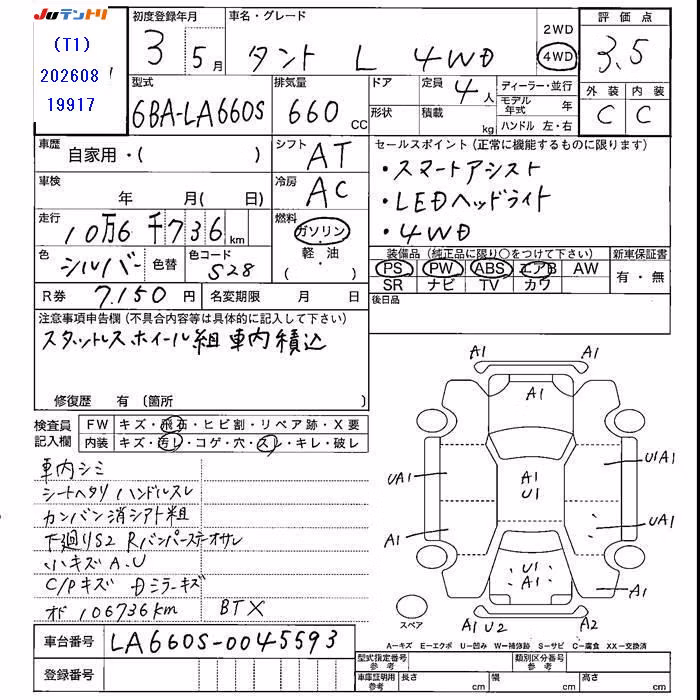 Juテントリ
(T1)
202608
19917
初度登録年月
3 5月
車名・グレード
タント L 4WD
2WD
4WD
評価点
3.5
外装 内装
C C
型式
6BA-LA660S
排気量
660 cc
ドア
形状
定員 4人
積載 kg
ディーラー・並行
モデル年式 年
ハンドル 左・右
車歴 自家用・( )
シフト AT
車検 年 月( 日)
冷房 AC
走行 10万6千736km
燃料 ガソリン・軽油( )
色 シルバー 色替
色コード S28
R券 7,150円
名変期限 月 日
セールスポイント(正常に機能するものに限ります)
・スマートアシスト
・LEDヘッドライト
・4WD
装備品(純正品に限り○をつけて下さい)
PS PW ABS エアB AW
SR ナビ TV カワ
新車保証書
有・無
後日品
注意事項申告欄(不具合内容等は具体的に記入して下さい)
スタットレスホイール組車内積込
修復歴 有(箇所 )
検査員記入欄
FW キズ・飛石・ヒビ割・リペア跡・X要
内装 キズ・汚レ・コゲ・穴・スレ・キレ・破レ
車内シミ
シートヘタリ ハンドルスレ
カンバン消シアト粗
下廻りS2 Rバンパーステーオサレ
小キズA.U
C/Pキズ Dミラーキズ
オド 106736km BTX
A1 A1
A1
UA1 A1 U1 U1A1
A1 UA1
U1 A1 A1
スペア A1 U2 A2
A-キズ E-エクボ U-凹み W-補修跡 S-サビ C-腐食 XX-交換済
車台番号 LA660S-0045593
登録番号
型式指定番号 参考
類別区分番号 参考
車庫証明用 参考 長さ cm 幅 cm 高さ cm